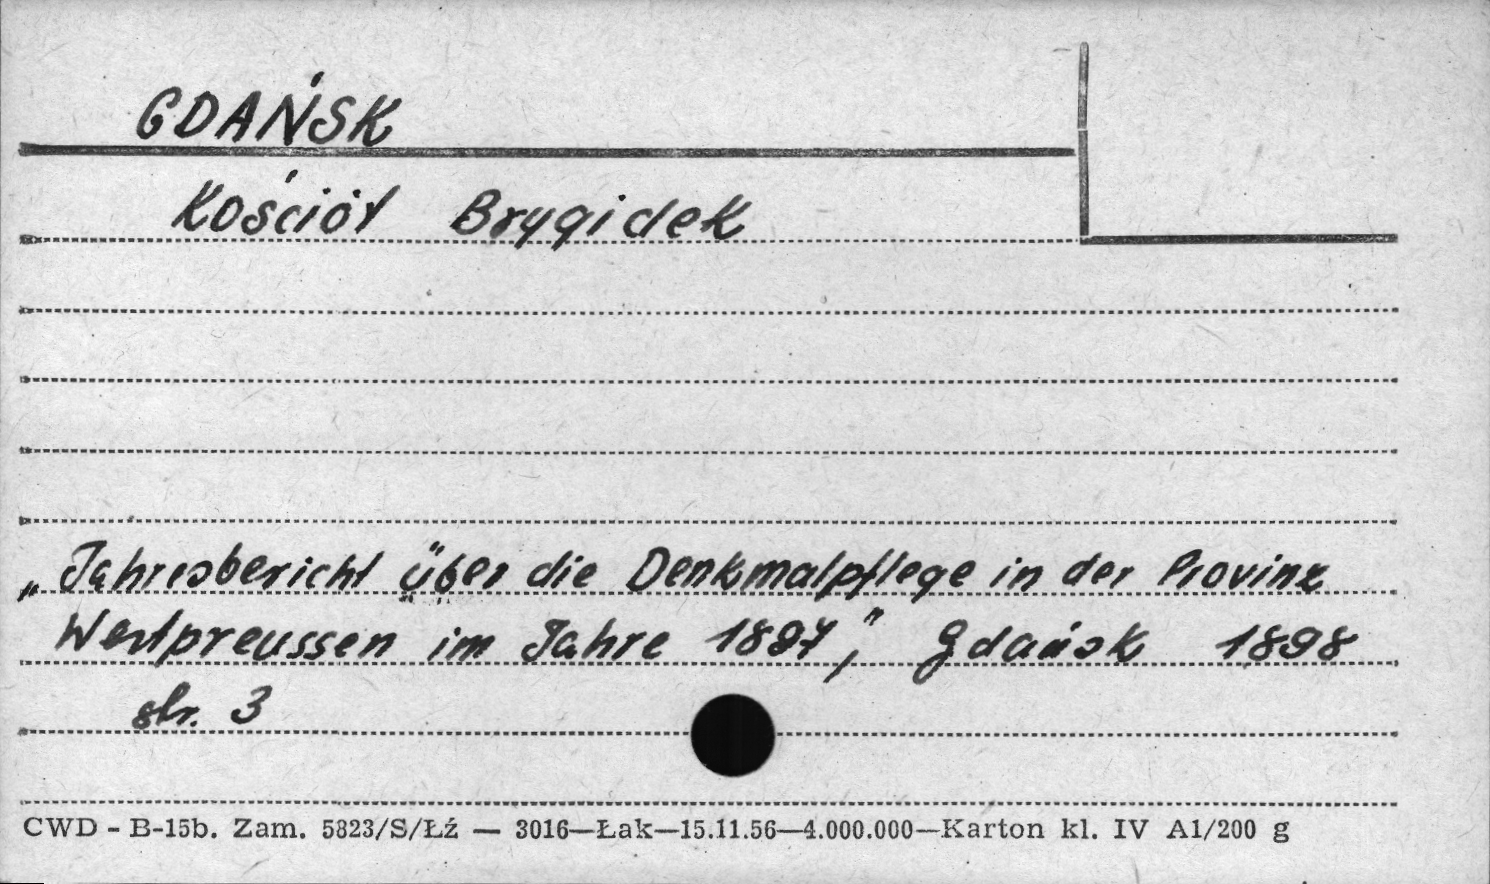 GDAŃSK
Kościół Brygidek
„Jahresbericht über die Denkmalpflege in der Provinz
Westpreussen im Jahre 1897", Gdańsk 1898
str. 3
CWD - B-15b. Zam. 5823/S/Łź — 3016—Łak—15.11.56—4.000.000—Karton kl. IV A1/200 g